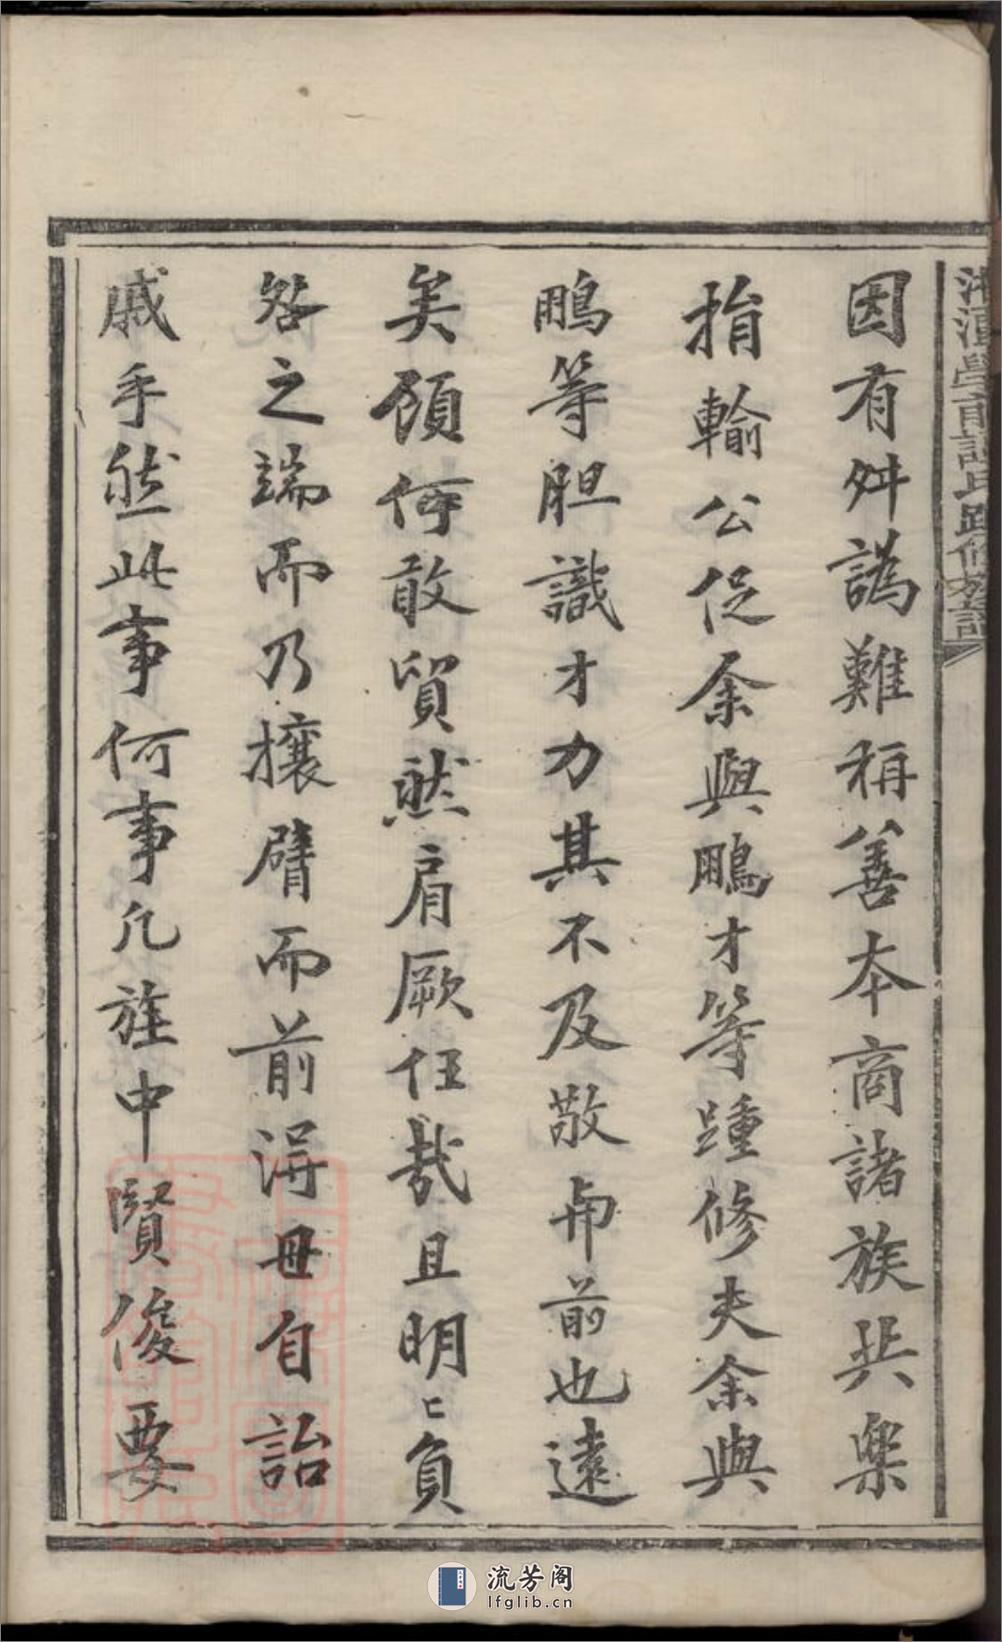 因有舛譌難稱善本商諸族共樂
捐輸公促余與鵬才等踵修夫余與
鵬等胆識才力其不及敬甫前也遠
矣顧何敢貿然肩厥任哉且明〻負
咎之端而乃攘臂而前淂毋自詒
戚乎然此事何事凡族中賢俊要
湘潭學前譚氏 修族譜
流芳阁
lfglib.cn